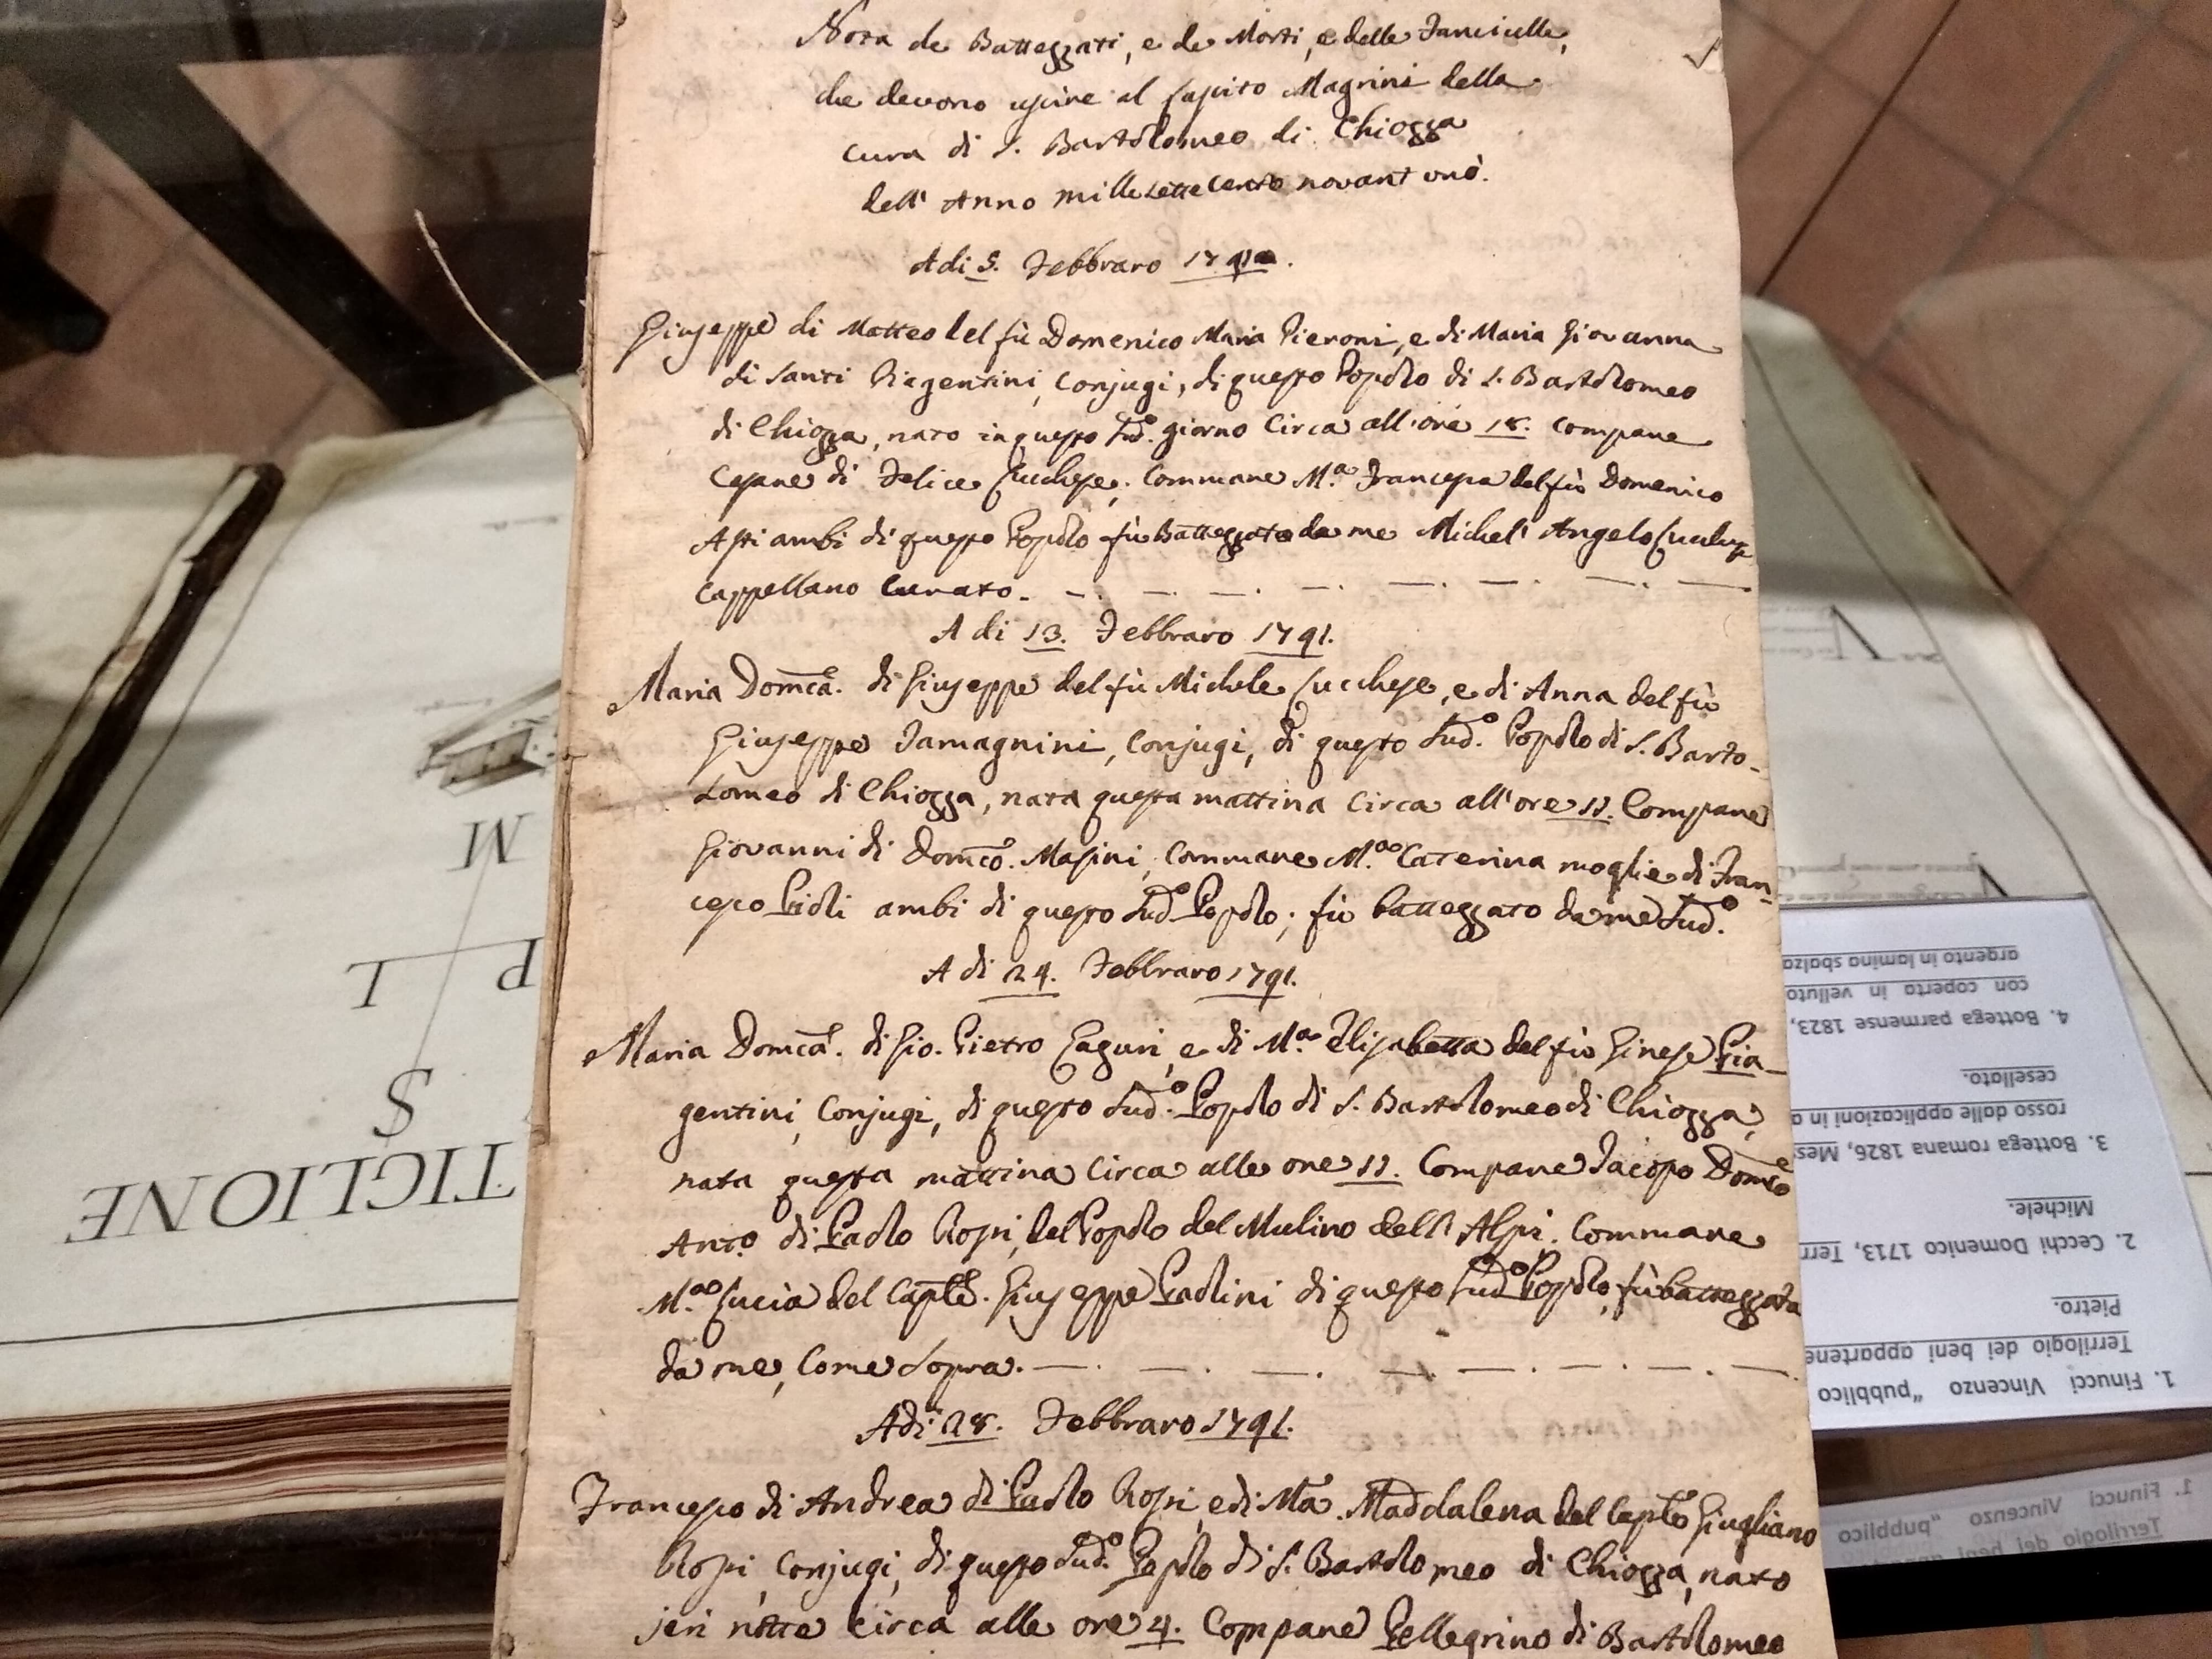 Nota de Battezzati, e de Morti, e delle Fanciulle,
che devono uscire al Lascito Magrini della
Cura di S. Bartolomeo di Chiozza
dell' Anno mille sette cento novant'uno.
A di 5. Febbraro 1791.
Giuseppe di Matteo del fù Domenico Maria Pieroni, e di Maria Giovanna
di Santi Piagentini, Conjugi, di questo Popolo di S. Bartolomeo
di Chiozza, nato in questo sud.o giorno Circa all'ore 18. Compare
di Felice Lucchese; Commare M.a Francesca del fù Domenico
Asti ambi di questo Popolo fù Battezzato da me Michel' Angelo
Cappellano Curato.
A di 13. Febbraro 1791.
Maria Dom.ca di Giuseppe del fù Michele Lucchese, e di Anna del fù
Giuseppe Tamagnini, Conjugi, di questo sud.o Popolo di S. Barto-
lomeo di Chiozza, nata questa mattina Circa all'ore 11. Compare
Giovanni di Dom.co Masini, Commare M.a Caterina moglie di Fran-
cesco Pioli ambi di questo sud.o Popolo; fù battezzato da me sud.o
A di 24. Febbraro 1791.
Maria Dom.ca di Gio. Pietro Paguri, e di M.a Elisabetta del fù Ginese Pia-
gentini, Conjugi, di questo sud.o Popolo di S. Bartolomeo di Chiozza,
nata questa mattina Circa alle ore 11. Compare Jacopo Dom.co
Ant.o di Paolo Rossi, del Popolo del Mulino dell' Alpi. Commare
M.a Lucia del Cap.te Giuseppe Paolini di questo sud.o Popolo, fù battezzata
da me, Come Sopra.
A di 28. Febbraro 1791.
Francesco di Andrea di Paolo Rossi, e di M.a Maddalena del Giugliano
Rossi, Conjugi, di questo sud.o Popolo di S. Bartolomeo di Chiozza, nato
jeri notte Circa alle ore 4. Compare Pellegrino di Bartolomeo
TIGLIONE
S
P L
M
1. Finucci Vincenzo "pubblico
Terrilogio dei beni appartene
Pietro.
2. Cecchi Domenico 1713, Terr
Michele.
3. Bottega romana 1826, Mess
rosso dalle applicazioni in a
cesellato.
4. Bottega parmense 1823,
con coperta in velluto
argento in lamina sbalza
1. Finucci Vincenzo "pubblico
Terrilogio dei beni